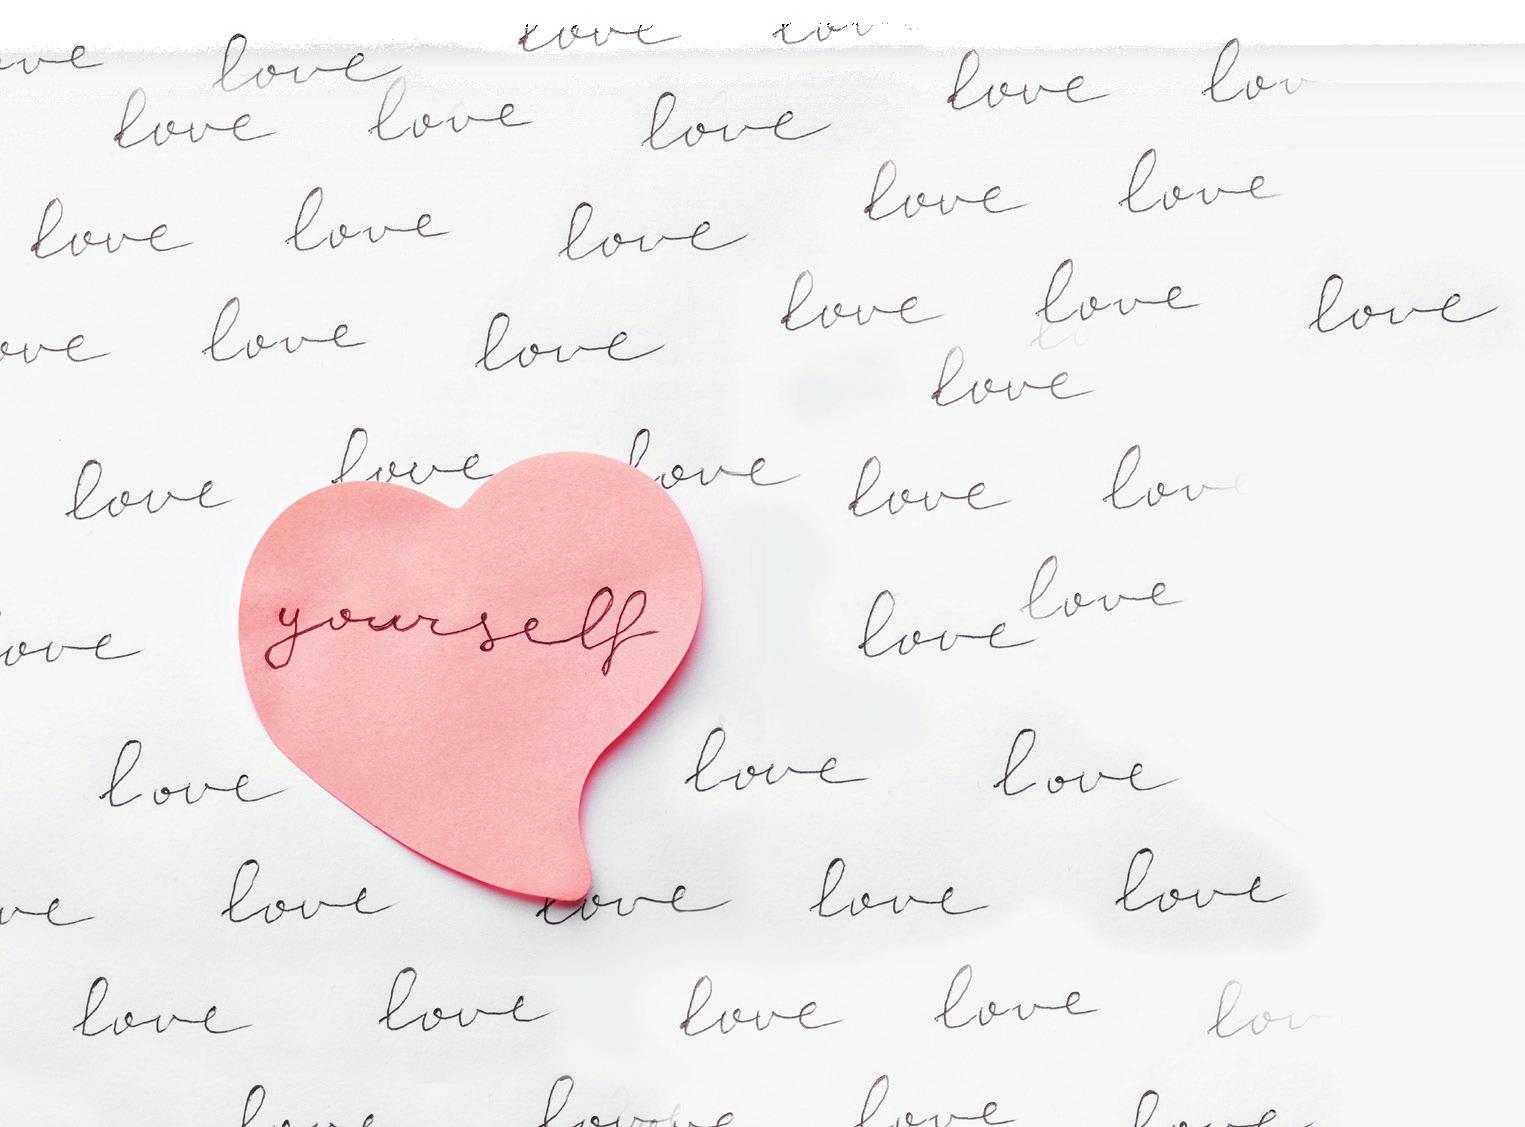 love love
love love love
love love love love
love love love love love
love love love love love love
love
love love love love lov
yourself
love love love
love love love
love love love love
love love love love lov
love love love love